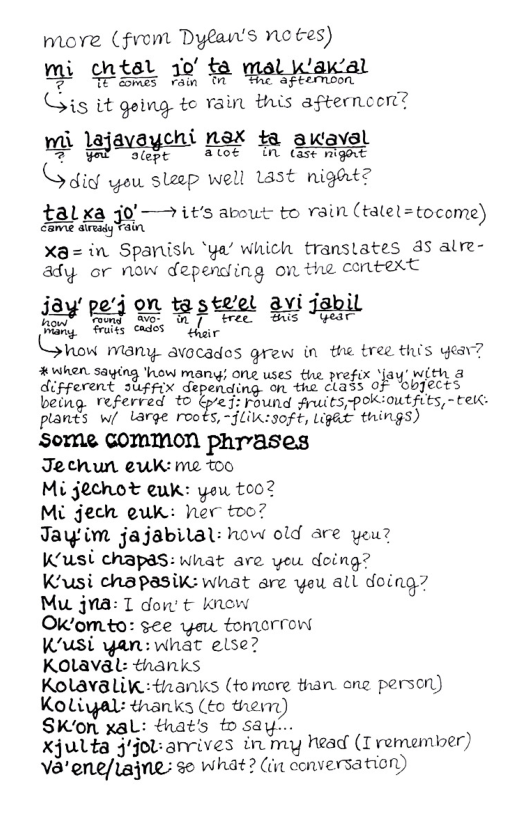 more (from Dylan's notes)
mi chtal jo' ta mal k'ak'al
? it comes rain in the afternoon
is it going to rain this afternoon?
mi lajavaychi nax ta ak'aval
? you slept a lot in last night
did you sleep well last night?
talxa jo' → it's about to rain (talel=to come)
came already rain
xa = in Spanish 'ya' which translates as alre-
ady or now depending on the context
jay' pe'j on ta s te'el avi jabil
how many round fruits avo-cados in / their tree this year
how many avocados grew in the tree this year?
* when saying 'how many', one uses the prefix 'jay' with a
different suffix depending on the class of objects
being referred to (p'ej: round fruits, -pok: outfits, -tek:
plants w/ large roots, -jlik: soft, light things)
some common phrases
Jechun euk: me too
Mi jechot euk: you too?
Mi jech euk: her too?
Jay'im jajabilal: how old are you?
K'usi chapas: what are you doing?
K'usi chapasik: what are you all doing?
Mu jna: I don't know
Ok'omto: see you tomorrow
K'usi yan: what else?
Kolaval: thanks
Kolavalik: thanks (to more than one person)
Koliyal: thanks (to them)
SK'on xal: that's to say...
xjulta j'jol: arrives in my head (I remember)
va'ene/lajne: so what? (in conversation)